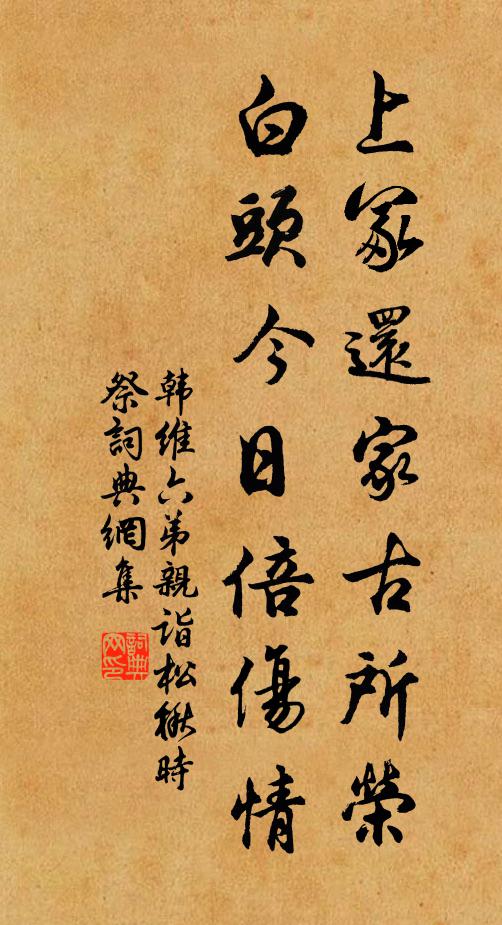 上冢還家古所榮
白頭今日倍傷情
韩維六弟親詣松楸時
祭詞典網集
詞典網印